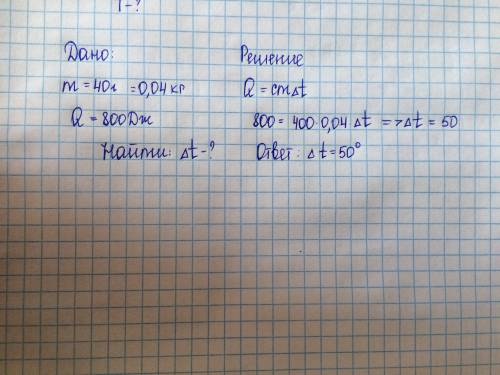 T-?
Дано:
m = 40г = 0,04 кг
Q = 800Дж
Найти: Δt-?
Решение
Q = cmΔt
800 = 400·0,04 Δt => Δt = 50
Ответ: Δt = 50°